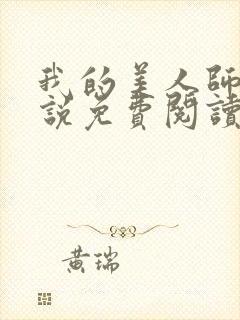 我的美人師
說免費閱讀
黃瑞